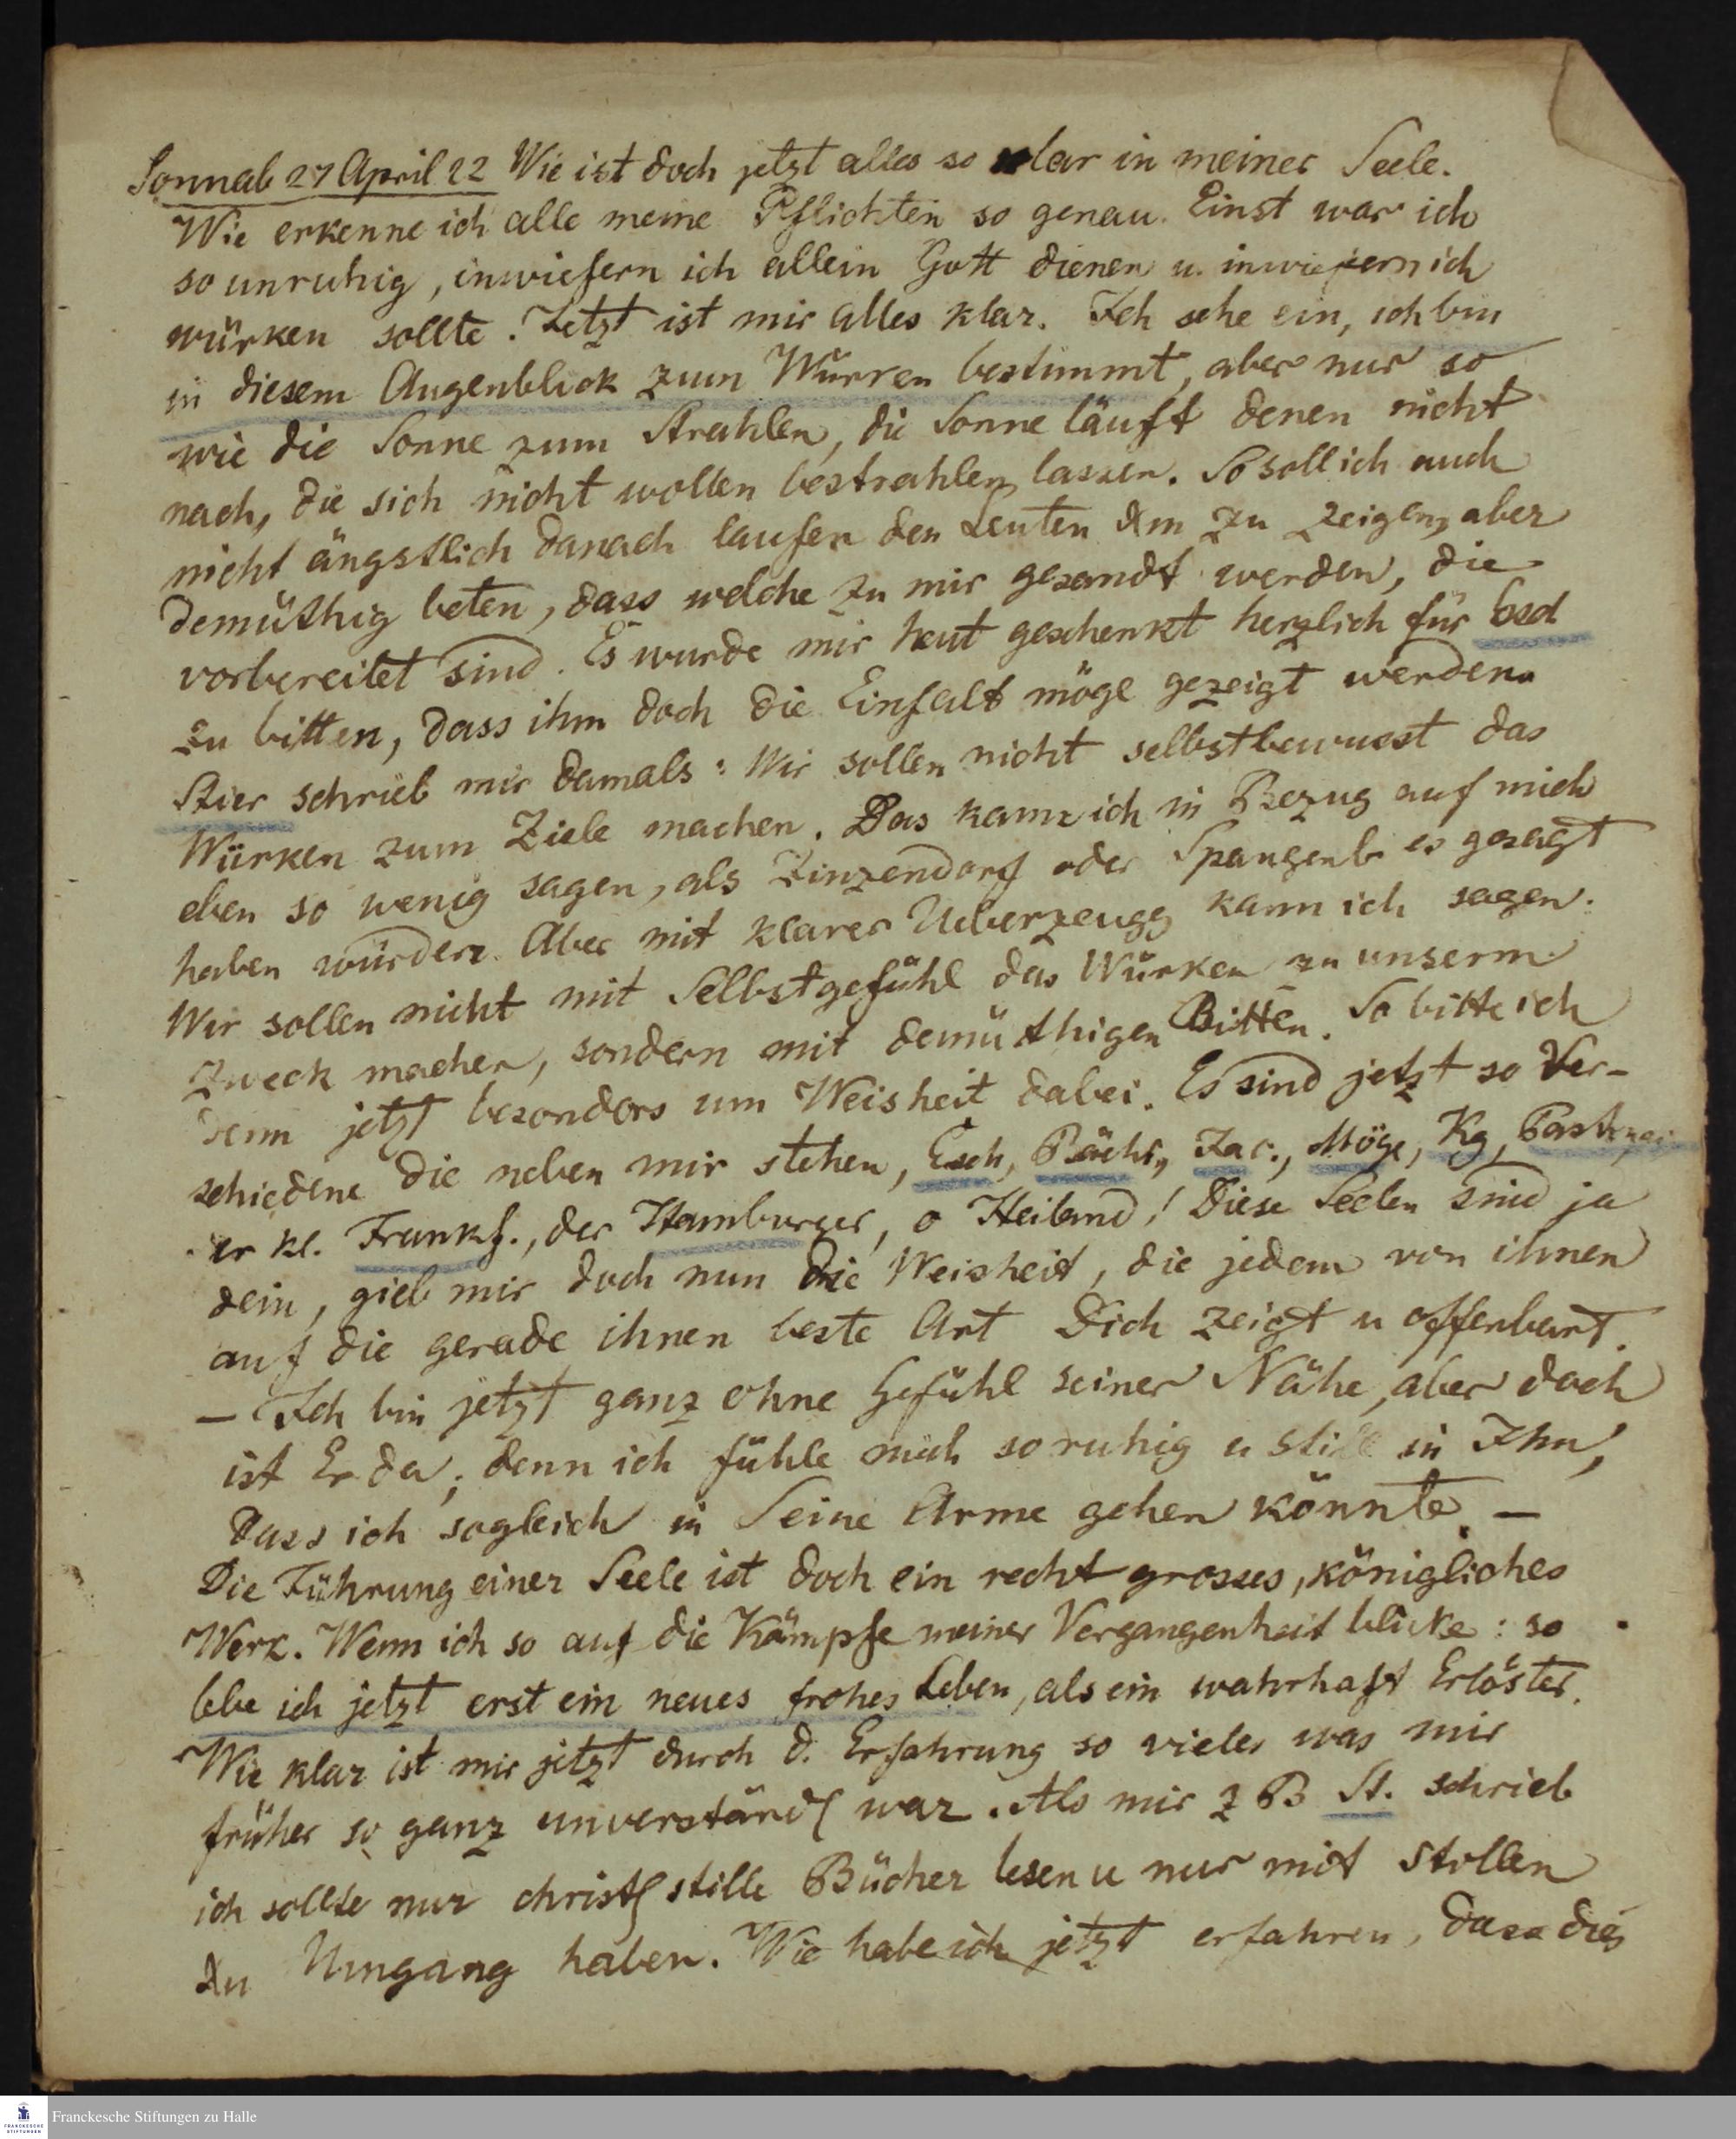 Sonnab 27 April 22 Wie ist doch jetzt alles so klar in meiner Seele.
Wie erkenne ich alle meine Pflichten so genau. Einst war ich
so unruhig, inwiefern ich allein Gott dienen u. inwiefern ich
würken sollte. Jetzt ist mir alles klar. Ich sehe ein, ich bin
in diesem Augenblick zum Würken bestimmt, aber nur so
wie die Sonne zum Strahlen, die Sonne läuft denen nicht
nach, die sich nicht wollen bestrahlen lassen. So soll ich auch
nicht ängstlich danach laufen den Leuten zu zeigen, aber
demüthig beten, dass welche zu mir gesandt werden, die
vorbereitet sind. Es wurde mir heut geschenkt herzlich für
zu bitten, dass ihm doch die Einfalt möge gezeigt werden.
Stier schrieb mir damals: Wir sollen nicht selbstbewusst das
Würken zum Ziele machen. Das kann ich in Bezug auf mich
eben so wenig sagen, als Zinzendorf oder Spangenb es gesagt
haben würden. Aber mit klarer Ueberzeugg kann ich sagen.
Wir sollen nicht mit Selbstgefühl das Würken zu unserm
Zweck machen, sondern mit demüthigen Bitten. So bitte ich
denn jetzt besonders um Weisheit dabei. Es sind jetzt so Ver-
schiedene die neben mir stehen, Esch, Jac., Möge, Kg,
er kl. Frankf., der Hamburger, o Heiland! Diese Seelen sind ja
dein, gieb mir doch nun die Weisheit, die jedem von ihnen
auf die gerade ihnen beste Art Dich zeigt u offenbart.
– Ich bin jetzt ganz ohne Gefühl seiner Nähe, aber doch
ist Er da; denn ich fühle mich so ruhig u still in Ihm,
dass ich sogleich in Seine Arme gehen könnte. –
Die Führung einer Seele ist doch ein recht grosses, königliches
Werk. Wenn ich so auf die Kämpfe meiner Vergangenheit blicke: so
lebe ich jetzt erst ein neues frohes Leben, als ein wahrhaft Erlöster.
Wie klar ist mir jetzt durch d. Erfahrung so vieles was mir
früher so ganz unverständl war. Als mir z B St. schrieb
ich sollte nur christl stille Bücher lesen u nur mit stillen
Umgang haben. Wie habe ich jetzt erfahren, dass dies
Franckesche Stiftungen zu Halle
FRANCKESCHE
STIFTUNGEN